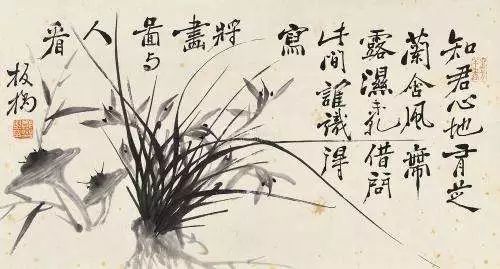 知君心地有芝
蘭含風帶
露濕未乾借問
此間誰識得
寫
將
畫
圖与
人
看
板橋